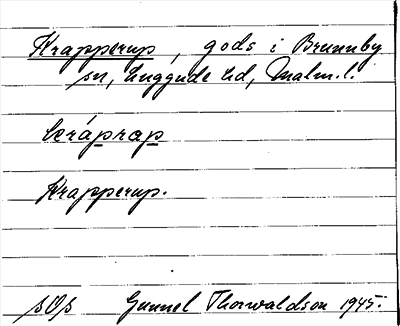 Krapperup, gods i Brunnby
sn, Luggude hd, Malm. l.
kráprap
Krapperup.
SOS Gunnel Thorwaldson 1945.